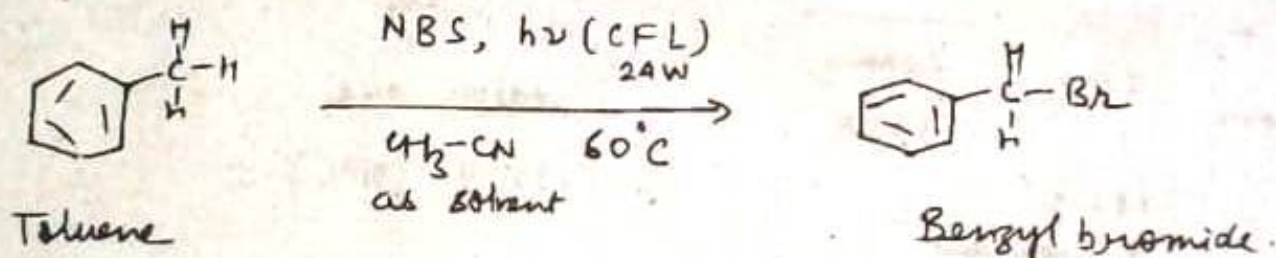 NBS, hν (CFL)
24W
CH3-CN 60°C
as solvent
H
C-H
H
Toluene
H
C-Br
H
Benzyl bromide.